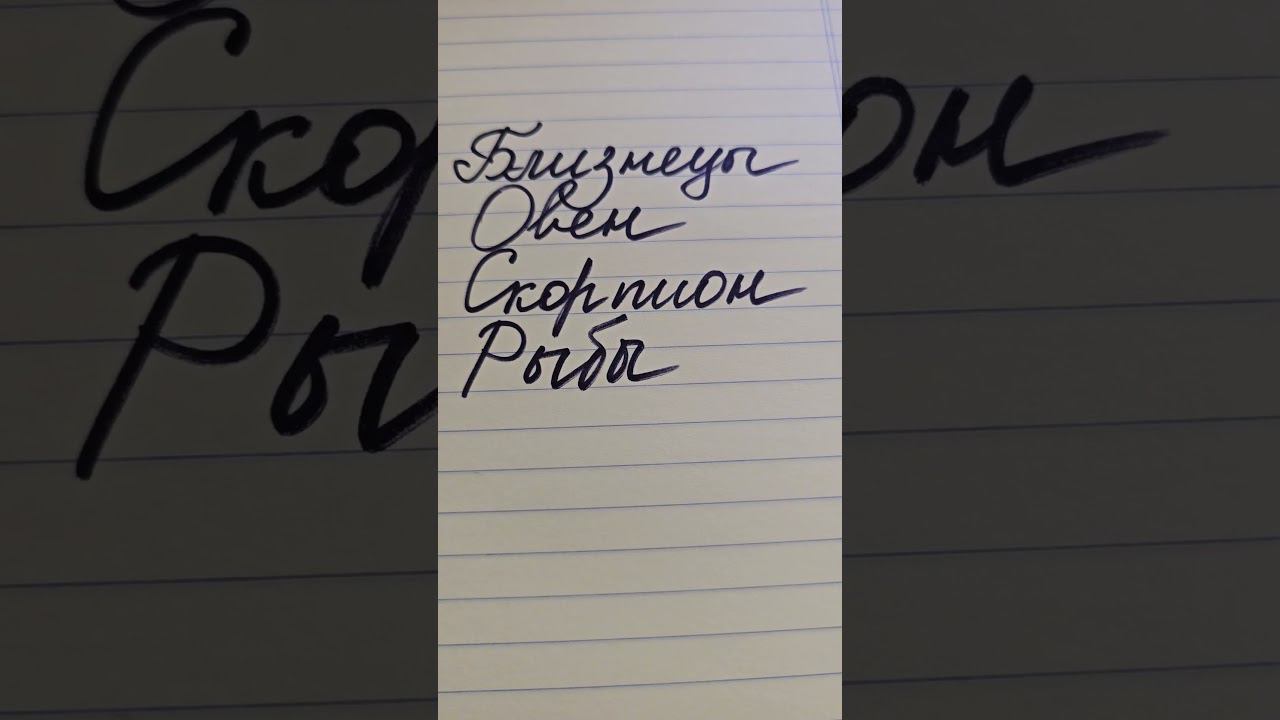 Близнецы
Овен
Скорпион
Рыбы